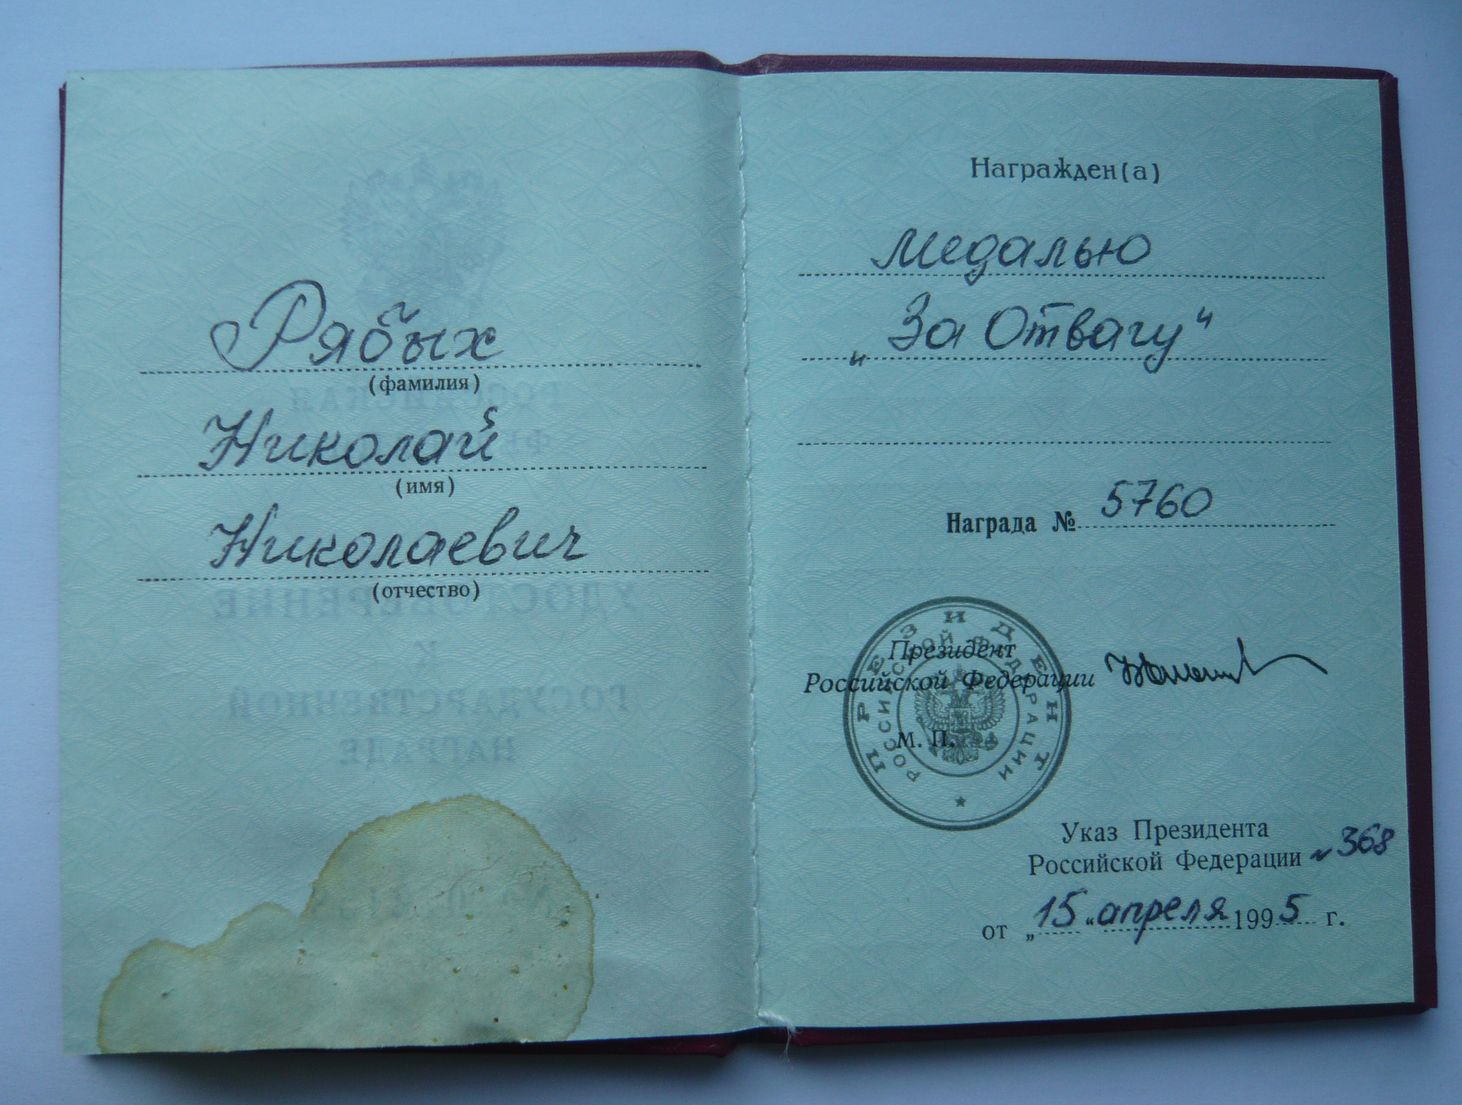 Рябых
(фамилия)
Николай
(имя)
Николаевич
(отчество)
Награжден(а)
Медалью
„За Отвагу“
Награда № 5760
Президент
Российской Федерации
М. П.
ПРЕЗИДЕНТ
РОССИЙСКОЙ ФЕДЕРАЦИИ
Указ Президента
Российской Федерации № 368
от „15“ апреля 1995 г.
РОССИЙСКАЯ
УДОСТОВЕРЕНИЕ
К
ГОСУДАРСТВЕННОЙ
НАГРАДЕ